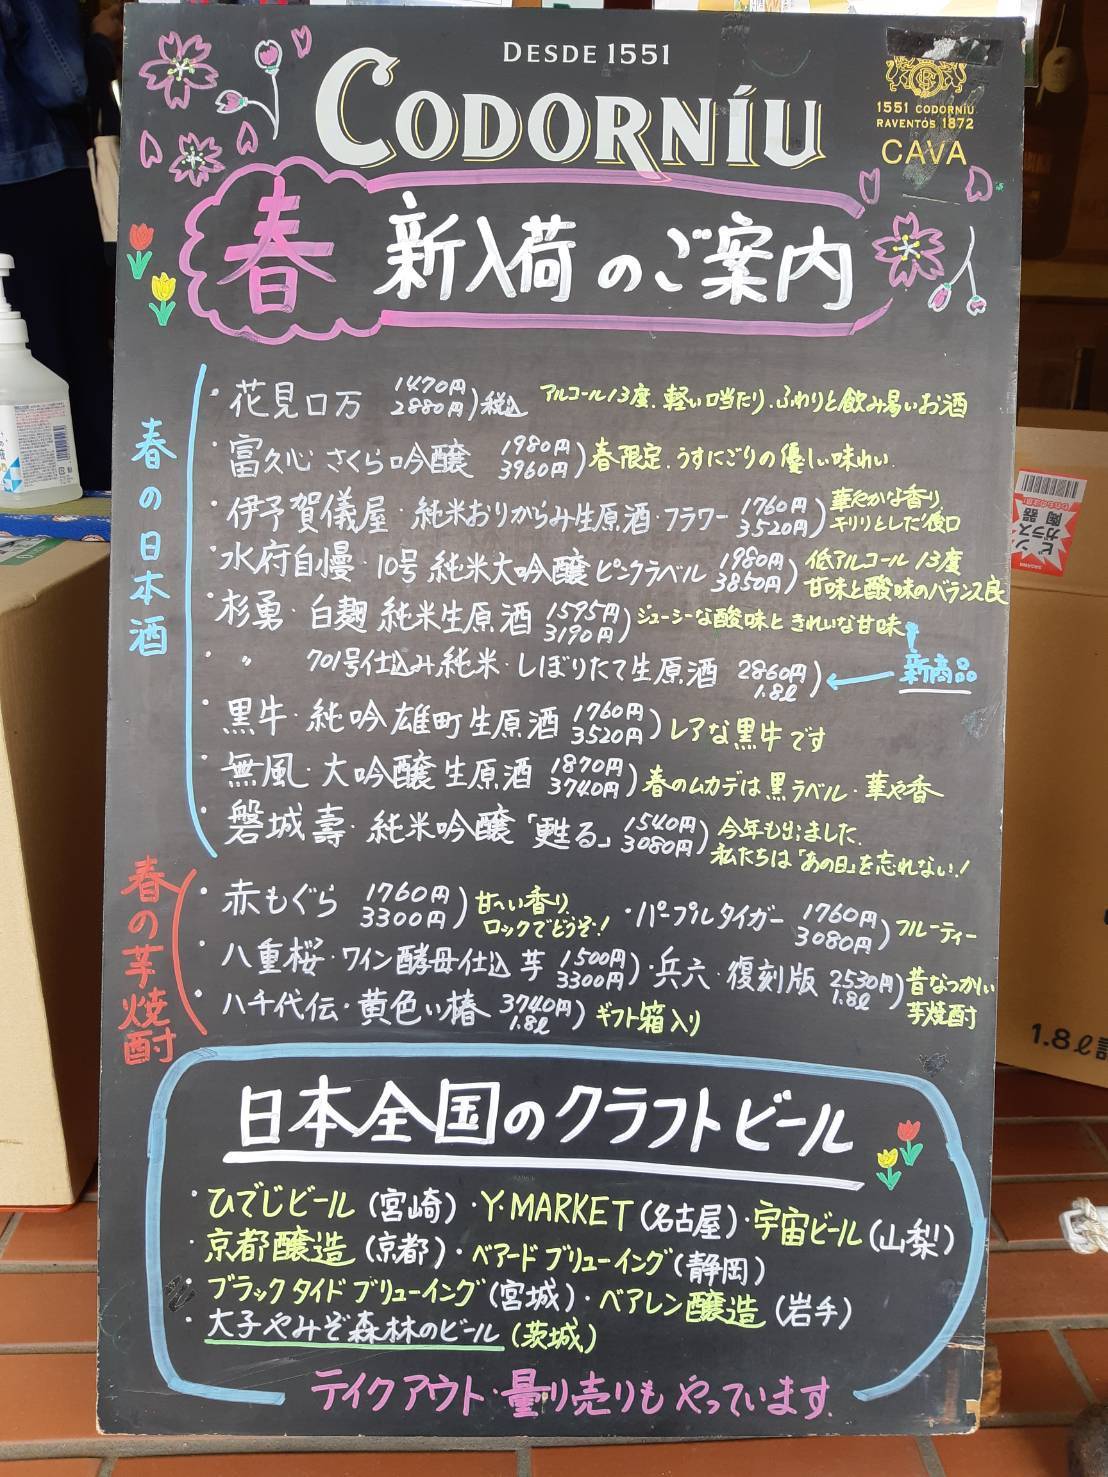 DESDE 1551
CODORNÍU
1551 CODORNÍU
RAVENTÓS 1872
CAVA
春 新入荷のご案内
春の日本酒
・花見口万 1470円 2880円)税込 アルコール13度、軽い口当たり、ふわりと飲み易いお酒
・富久心 さくら吟醸 1980円 3960円)春限定、うすにごりの優しい味わい
・伊予賀儀屋・純米おりがらみ生原酒・フラワー 1760円 3520円)華やかな香り、キリリとした後口
・水府自慢・10号 純米大吟醸 ピンクラベル 1980円 3850円)低アルコール 13度 甘味と酸味のバランス良
・杉勇・白麹 純米生原酒 1595円 3190円)ジューシーな酸味と きれいな甘味
・〃 701号仕込み純米・しぼりたて生原酒 2860円 1.8ℓ)←新商品
・黒牛・純吟 雄町生原酒 1760円 3520円)レアな黒牛です
・無風・大吟醸生原酒 1870円 3740円)春のムカデは黒ラベル・華や香
・磐城壽・純米吟醸「甦る」 1540円 3080円)今年も出ました、私たちは「あの日」を忘れない!
春の芋焼酎
・赤もぐら 1760円 3300円)甘〜い香り、ロックでどうぞ!
・パープルタイガー 1760円 3080円)フルーティー
・八重桜・ワイン酵母仕込 芋 1500円 3300円)
・兵六・復刻版 2530円 1.8ℓ)昔なつかしい芋焼酎
・八千代伝・黄色い椿 3740円 1.8ℓ)ギフト箱入り
日本全国のクラフトビール
・ひでじビール(宮崎)・Y・MARKET(名古屋)・宇宙ビール(山梨)
・京都醸造(京都)・ベアードブリューイング(静岡)
・ブラックタイドブリューイング(宮城)・ベアレン醸造(岩手)
・大子やみぞ森林のビール(茨城)
テイクアウト・量り売りもやっています。
ビン
ガラス
陶器
1.8ℓ詰